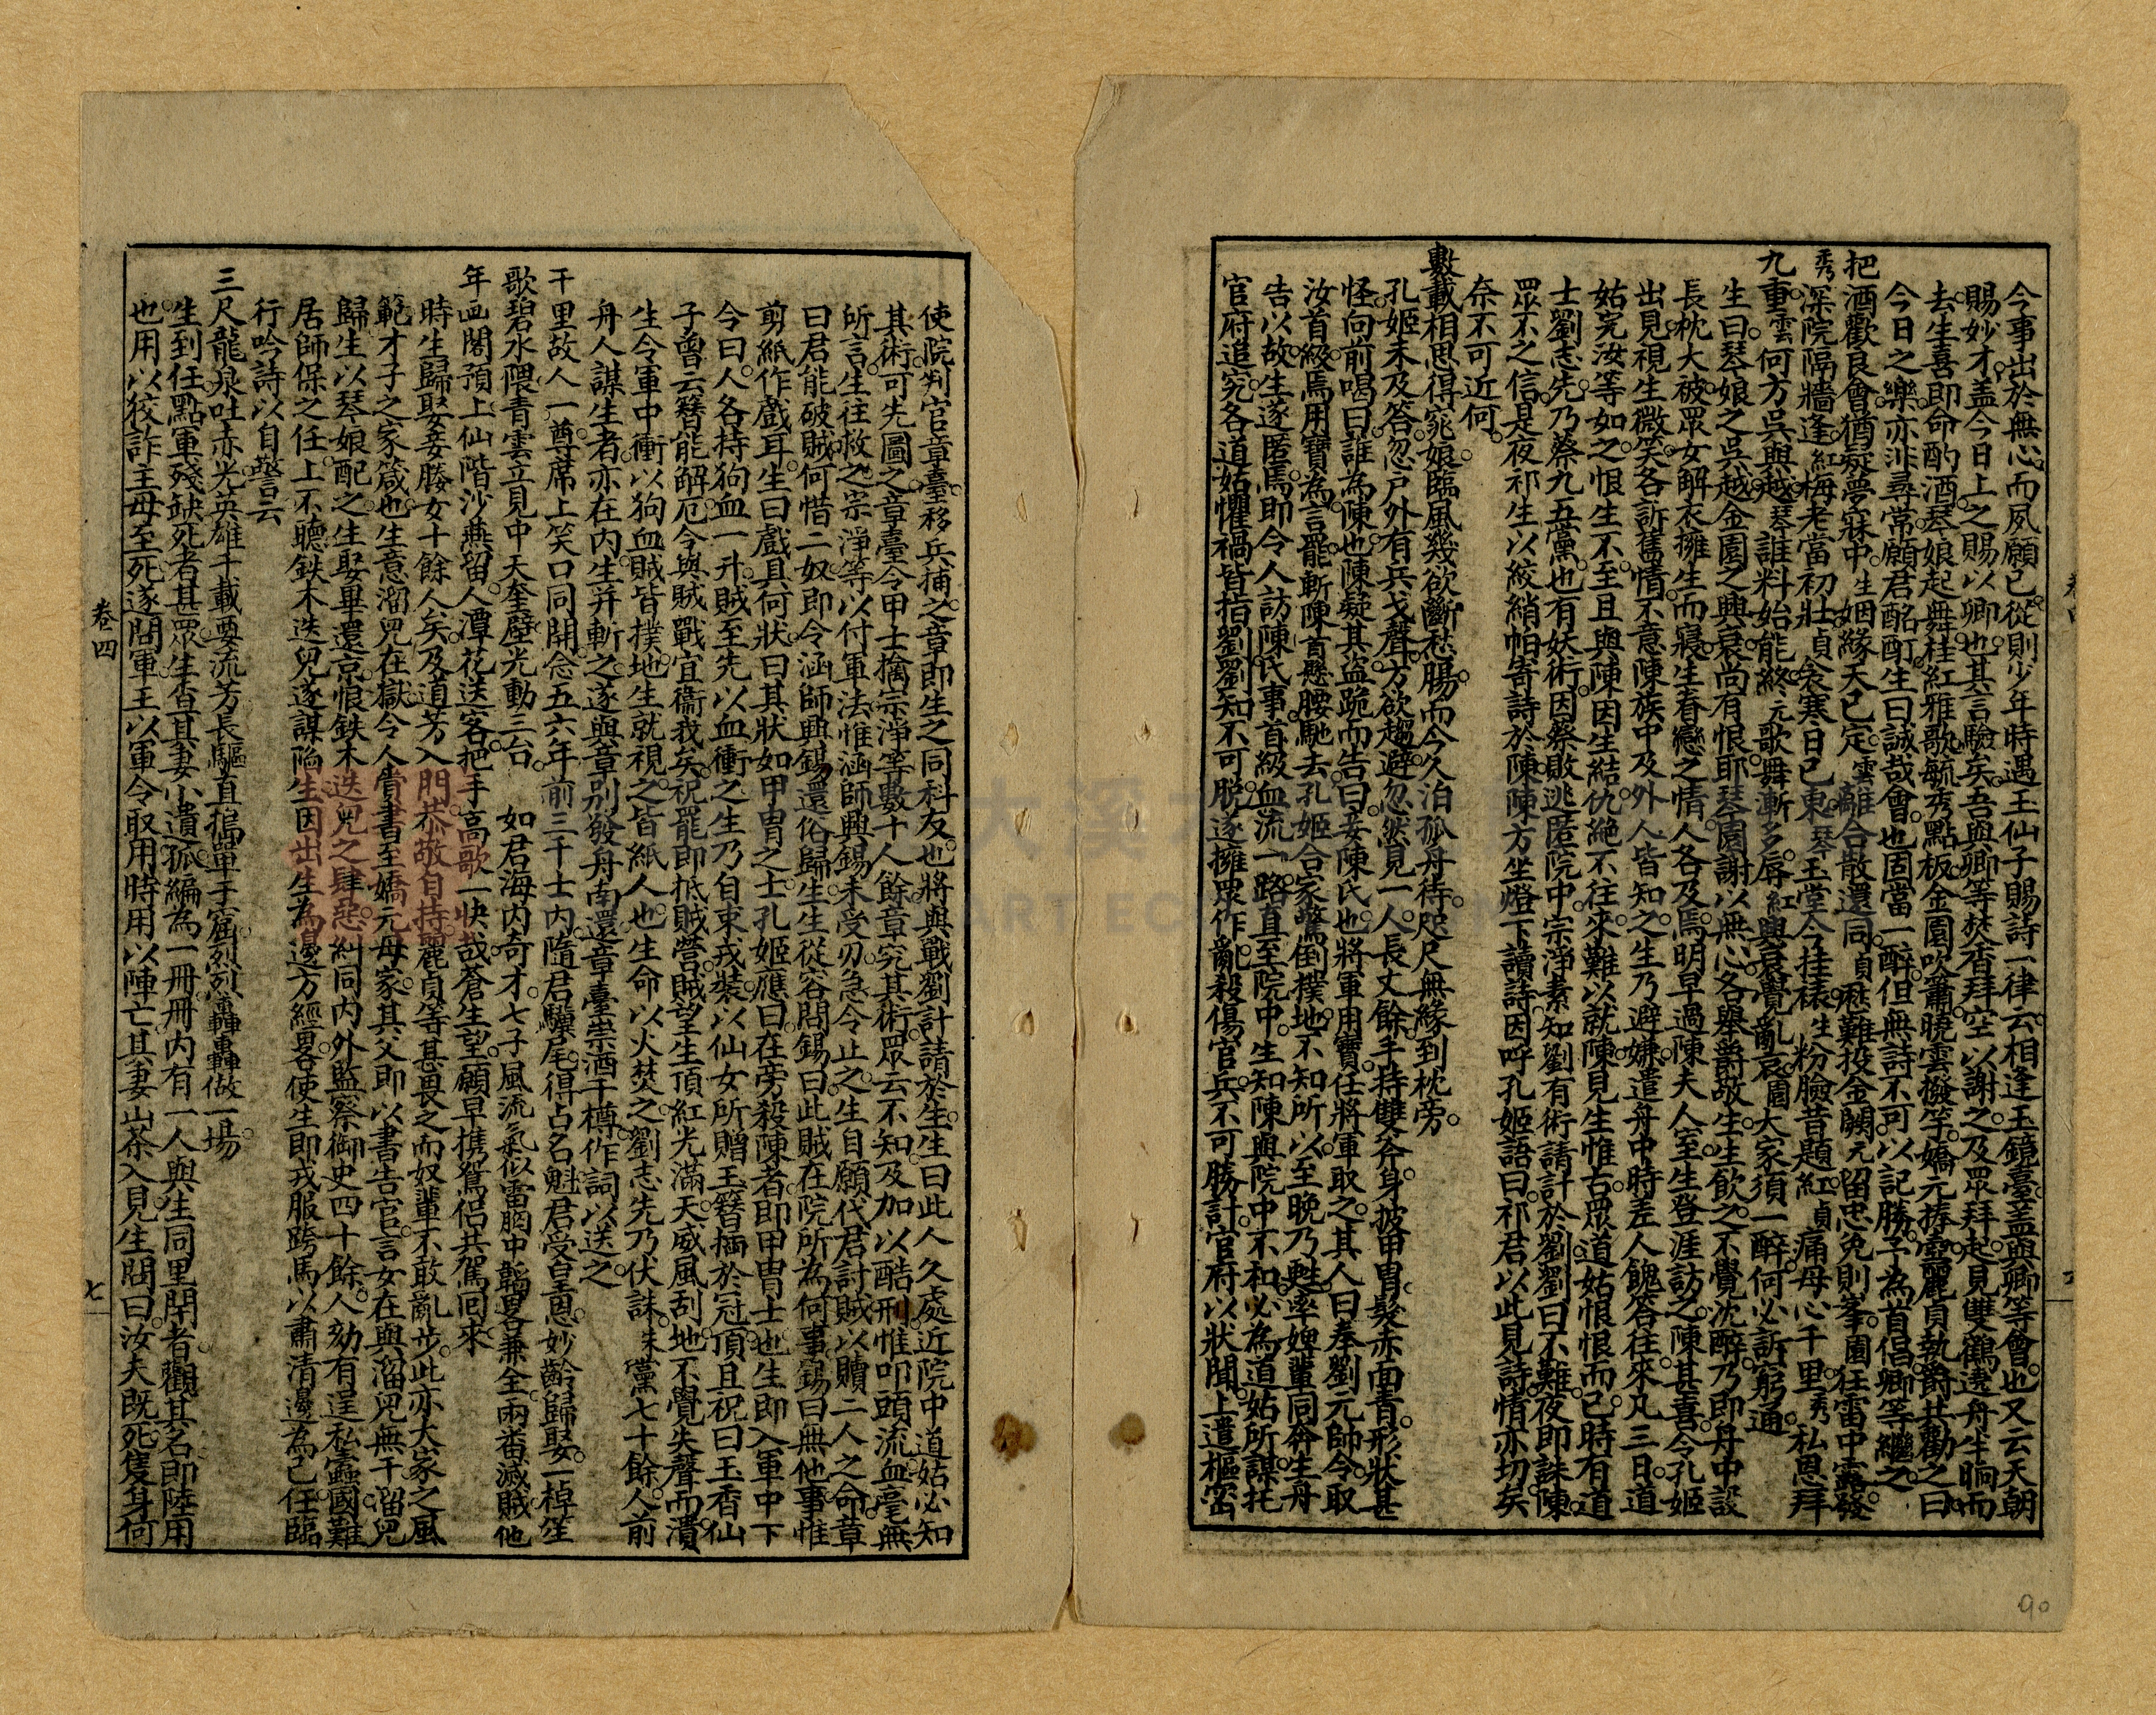 今事出於無心而夙願已從則少年時遇玉仙子賜詩一律云相逢玉鏡臺蓋與卿等會也又云天朝
賜妙才蓋今日上之賜以卿也其言驗矣吾與卿等焚香拜空以謝之及眾拜起見雙鶴遶舟生晌而
去生喜即命酌酒琴娘起舞桂紅雅歌毓秀點板金園吹簫曉雲撥竽嬌元捧壺麗貞執爵共勸之曰
今日之樂亦非尋常願君酩酊生曰誠哉會也固當一醉但無詩不可以記勝子為首倡卿等繼之
把酒歡良會猶疑夢寐中生姻緣天已定雲離合散還同貞慇難投金闕元留忠免則峯園狂雷中露發
秀深院隔牆逢紅梅老當初壯貞衾寒日已東琴玉堂今挂襪生粉臉昔題紅貞痛母心千里秀私恩拜
九重雲何方吳與越琴誰料始能終元歌舞漸多辱紅興衰覺亂哀園大家須一醉何必訴窮通
生曰琴娘之吳越金園之興衰尚有恨耶琴園謝以無心各舉爵敬生生飲之不覺沈醉乃即舟中設
長枕大被眾女解衣擁生而寢生春戀之情人各及焉明早過陳夫人室生登涯訪之陳甚喜令孔姬
出見視生微笑各訴舊情不意陳族中及外人皆知之生乃避嫌遣舟中時差人餽答往來凡三日道
姑完汝等如之恨生不至且與陳因生結仇絶不往來難以就陳見生惟古眾道姑恨恨而已時有道
士劉志先乃蔡九五黨也有妖術因蔡敗逃匿院中宗淨素知劉有術請計於劉劉曰不難夜即誅陳
眾不之信是夜祁生以絞綃帕寄詩於陳陳方坐燈下讀詩因呼孔姬語曰祁君以此見詩情亦切矣
奈不可近何
數載相思得窕娘臨風幾欲斷愁腸而今久泊孤舟待咫尺無緣到枕旁
孔姬未及答忽戶外有兵戈聲方欲趨避忽然見一人長丈餘手持雙斧身披甲冑髮赤面青形狀甚
怪向前喝曰誰為陳也陳疑其盜跪而告曰妾陳氏也將軍用寶任將軍取之其人曰奉劉元帥令取
汝首級焉用寶為言罷斬陳首懸腰馳去孔姬合家驚倒撲地不知所以至晚乃甦率婢輩同奔生舟
告以故生遂匿焉即令人訪陳氏事首級血流一路直至院中生知陳與院中不和必為道姑所謀托
官府追究各道姑懼禍皆指劉劉知不可脱遂擁眾作亂殺傷官兵不可勝計官府以狀聞上遣樞密
使院判官章臺移兵捕之章即生之同科友也將與戰劉計請於生生曰此人久處近院中道姑必知
其術可先圖之章臺令甲士擒宗淨等數十人餘章究其術眾云不知及加以酷刑惟叩頭流血毫無
所言生往救之宗淨等以付軍法惟涵師興錫未受刃急令止之生自願代君討賊以贖二人之命章
曰君能破賊何惜二奴即令涵師興錫還俗歸生生從容問錫曰此賊在院所為何事錫曰無他事惟
剪紙作戲耳生曰戲具何狀曰其狀如甲冑之士孔姬應曰在旁殺陳者即甲冑士也生即入軍中下
令曰人各持狗血一升賊至先以血衝之生乃自束戎裝以仙女所贈玉簪插於冠頂且祝曰玉香仙
子曾云簪能解厄今與賊戰宜衞我矣祝罷即抵賊營賊望生頂紅光滿天威風刮地不覺失聲而潰
生令軍中衝以狗血賊皆撲地生就視之皆紙人也生命以火焚之劉志先乃伏誅誅黨七十餘人前
舟人謀生者亦在內生并斬之遂與章别發舟南還章臺崇酒千樽作詞以送之
千里故人一尊席上笑口同開念五六年前三千士內隨君驥尾得占名魁君受皇恩妙齡歸娶一棹笙
歌碧水隈青雲立見中天奎壁光動三台　如君海內奇才七子風流氣似雷胸中韜畧兼全兩番滅賊他
年画閣預上仙階沙燕留人潭花送客把手高歌一快哉蒼生望願早携鴛侶共駕囘來
時生歸娶妾媵女十餘人矣及道芳入門恭敬自持麗貞等甚畏之而奴輩不敢亂步此亦大家之風
範才子之家箴也生意溜兒在獄令人齎書至嬌元母家其父即以書告官言女在與溜兒無干溜兒
歸生以琴娘配之生娶畢還京恨鉄木迭兒之肆惡糾同內外監察御史四十餘人劾有逞私蠹國難
居師保之任上不聽鉄木迭兒遂謀陷生因出生為邊方經畧使生即戎服跨馬以肅清邊為己任臨
行吟詩以自警云
三尺龍泉吐赤光英雄千載要流芳長驅直搗單于窟烈烈轟轟做一場
生到任點軍殘缺死者甚眾生省其妻小遺孤編為一冊冊內有一人與生同里閈者觀其名即陸用
也用以狡詐主母至死遂問軍王以軍令取用時用以陣亡其妻山茶入見生問曰汝夫既死隻身何
卷四
七
90